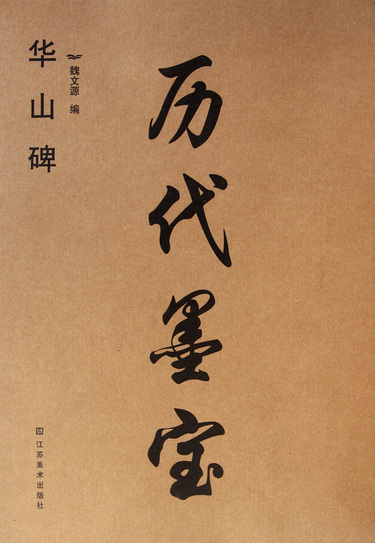 华山碑
魏文源 编
历代墨宝
江苏美术出版社